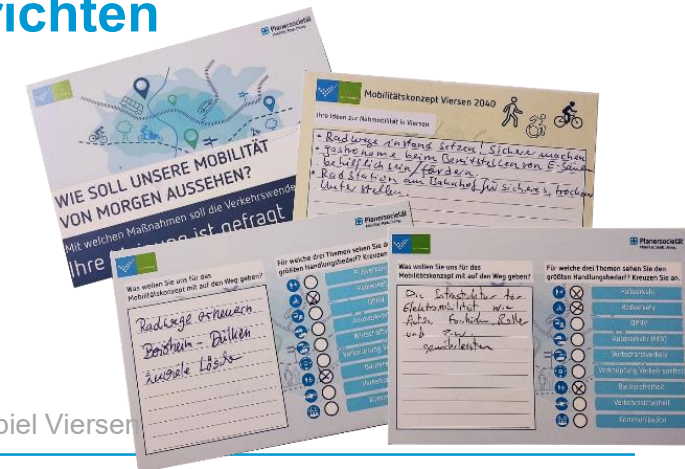 richten
Planersocietät
WIE SOLL UNSERE MOBILITÄT
VON MORGEN AUSSEHEN?
Mit welchen Maßnahmen soll die Verkehrswende
Ihre ist gefragt
Mobilitätskonzept Viersen 2040
Ihre Ideen zur Nahmobilität in Viersen
• Radwege instand setzen! Sicher machen
• Gastronome beim Bereitstellen von E-Säulen
behilflich sein / fördern
• Radstation am Bahnhof für sicheres, trockenes
Unterstellen
Planersocietät
Was wollen Sie uns für das
Mobilitätskonzept mit auf den Weg geben?
Radwege erneuern
Dülken
Für welche drei Themen sehen Sie den
größten Handlungsbedarf? Kreuzen Sie
Fußverkehr
Radverkehr
ÖPNV
Autoverkehr
Wirtschafts
Verknüpfung Verkehrs
Barriere
Verkehrs
Planersocietät
Was wollen Sie uns für das
Mobilitätskonzept mit auf den Weg geben?
Die Infrastruktur der
Elektromobilität wie
Autos, Roller
und
gewährleisten
Für welche drei Themen sehen Sie den
größten Handlungsbedarf? Kreuzen Sie an.
Fußverkehr
Radverkehr
ÖPNV
Autoverkehr (MIV)
Wirtschaftsverkehr
Verknüpfung Verkehrsmittel
Barrierefreiheit
Verkehrssicherheit
Kommunikation
piel Viersen